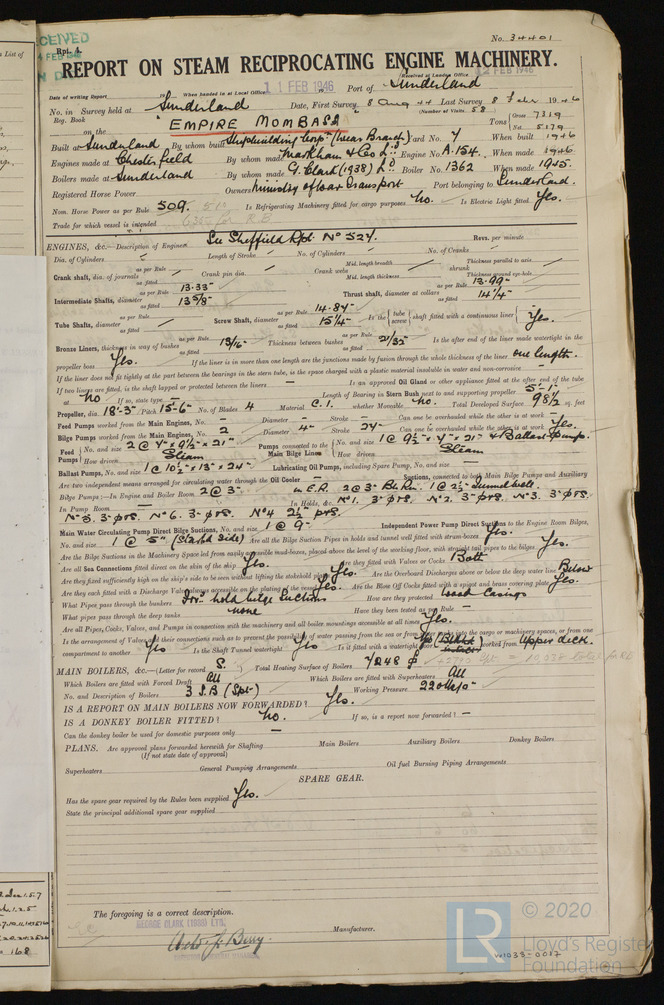 No. 34401
Rpt. 4.
11 FEB 1946
12 FEB 1946
REPORT ON STEAM RECIPROCATING ENGINE MACHINERY.
Received at London Office
Date of writing Report When handed in at Local Office Port of Sunderland
No. in Survey held at Sunderland Date, First Survey 8 Aug 44 Last Survey 8 Febr 1946
Reg. Book (Number of Visits 58)
on the "EMPIRE MOMBASA Tons Gross 7319 Net 5179
Built at Sunderland By whom built Shipbuilding Corpn (Wear Branch) Yard No. 4 When built 1946
Engines made at Chesterfield By whom made Markham & Co Ltd Engine No. A.154. When made 1946
Boilers made at Sunderland By whom made G. Clark (1938) Ltd Boiler No. 1362 When made 1945.
Registered Horse Power Owners Ministry of War Transport Port belonging to Sunderland.
Nom. Horse Power as per Rule 509. Is Refrigerating Machinery fitted for cargo purposes No. Is Electric Light fitted Yes.
Trade for which vessel is intended
ENGINES, &c.—Description of Engines See Sheffield Rpt. No 524. Revs. per minute
Dia. of Cylinders Length of Stroke No. of Cylinders No. of Cranks
Crank shaft, dia. of journals as per Rule as fitted Crank pin dia. Crank webs Mid. length breadth Mid. length thickness shrunk Thickness parallel to axis Thickness around eye-hole
Intermediate Shafts, diameter as per Rule 13.33" as fitted 13 5/8" Thrust shaft, diameter at collars as per Rule 13.99" as fitted 14 1/4"
Tube Shafts, diameter as per Rule as fitted Screw Shaft, diameter as per Rule 14.84" as fitted 15 1/4" Is the { tube screw } shaft fitted with a continuous liner { Yes.
Bronze Liners, thickness in way of bushes as per Rule as fitted 13/16" Thickness between bushes as per Rule as fitted 21/32" Is the after end of the liner made watertight in the
propeller boss Yes. If the liner is in more than one length are the junctions made by fusion through the whole length of the liner one length.
If the liner does not fit tightly at the part between the bearings in the stern tube, is the space charged with a plastic material insoluble in water and non-corrosive —
If two liners are fitted, is the shaft lapped or protected between the liners — Is an approved Oil Gland or other appliance fitted at the after end of the tube
shaft No If so, state type — Length of Bearing in Stern Bush next to and supporting propeller 5'-1"
Propeller, dia. 18'-3" Pitch 15'-6" No. of Blades 4 Material C.I. whether Moveable No. Total Developed Surface 98 1/2 sq. feet
Feed Pumps worked from the Main Engines, No. — Diameter — Stroke — Can one be overhauled while the other is at work —
Bilge Pumps worked from the Main Engines, No. 2 Diameter 4" Stroke 24" Can one be overhauled while the other is at work Yes.
Feed Pumps { No. and size 2 @ 7" x 9 1/2" x 21" How driven Steam Pumps connected to the Main Bilge Line { No. and size 1 @ 9 1/2" x 7" x 21" + Ballast Pump. How driven Steam
Ballast Pumps, No. and size 1 @ 10 1/2" x 13" x 24" Lubricating Oil Pumps, including Spare Pump, No. and size —
Are two independent means arranged for circulating water through the Oil Cooler — Suctions, connected to both Main Bilge Pumps and Auxiliary
Bilge Pumps:—In Engine and Boiler Room 2 @ 3" in E.R. 2 @ 3" 1 @ 2 1/2" Tunnel well.
In Pump Room — In Holds, &c. No 1. 3" p&s. No 2. 3" p&s. No 3. 3" p&s.
No 5. 3" p&s. No 6. 3" p&s. No 4 2 1/2" p&s.
Main Water Circulating Pump Direct Bilge Suctions, No. and size 1 @ 9" Independent Power Pump Direct Suctions to the Engine Room Bilges,
No. and size 1 @ 5" (Starbd side) Are all the Bilge Suction Pipes in holds and tunnel well fitted with strum-boxes Yes.
Are the Bilge Suctions in the Machinery Space led from easily accessible mud-boxes, placed above the level of the working floor, with straight tail pipes to the bilges Yes.
Are all Sea Connections fitted direct on the skin of the ship Yes. Are they fitted with Valves or Cocks Both
Are they fixed sufficiently high on the ship's side to be seen without lifting the stokehold plates Yes. Are the Overboard Discharges above or below the deep water line Below
Are they each fitted with a Discharge Valve always accessible on the plating of the vessel Yes. Are the Blow Off Cocks fitted with a spigot and brass covering plate Yes.
What Pipes pass through the bunkers hold bilge suctions How are they protected Wood casings
What pipes pass through the deep tanks none Have they been tested as per Rule —
Are all Pipes, Cocks, Valves, and Pumps in connection with the machinery and all boiler mountings accessible at all times Yes.
Is the arrangement of Valves and their connections such as to prevent the possibility of water passing from the sea or from into the cargo or machinery spaces, or from one
compartment to another Yes Is the Shaft Tunnel watertight Yes Is it fitted with a watertight door worked from Upper deck.
MAIN BOILERS, &c.—(Letter for record S.) Total Heating Surface of Boilers 7248
Which Boilers are fitted with Forced Draft All Which Boilers are fitted with Superheaters All
No. and Description of Boilers 3 S.B (Spt) Working Pressure 220
IS A REPORT ON MAIN BOILERS NOW FORWARDED? Yes.
IS A DONKEY BOILER FITTED? No. If so, is a report now forwarded? —
Can the donkey boiler be used for domestic purposes only —
PLANS. Are approved plans forwarded herewith for Shafting Main Boilers Auxiliary Boilers Donkey Boilers
(If not state date of approval)
Superheaters General Pumping Arrangements Oil fuel Burning Piping Arrangements
SPARE GEAR.
Has the spare gear required by the Rules been supplied Yes.
State the principal additional spare gear supplied
The foregoing is a correct description.
GEORGE CLARK (1938) LTD.
Manufacturer.
W1033-0087
LR © 2020
Lloyd's Register
Foundation